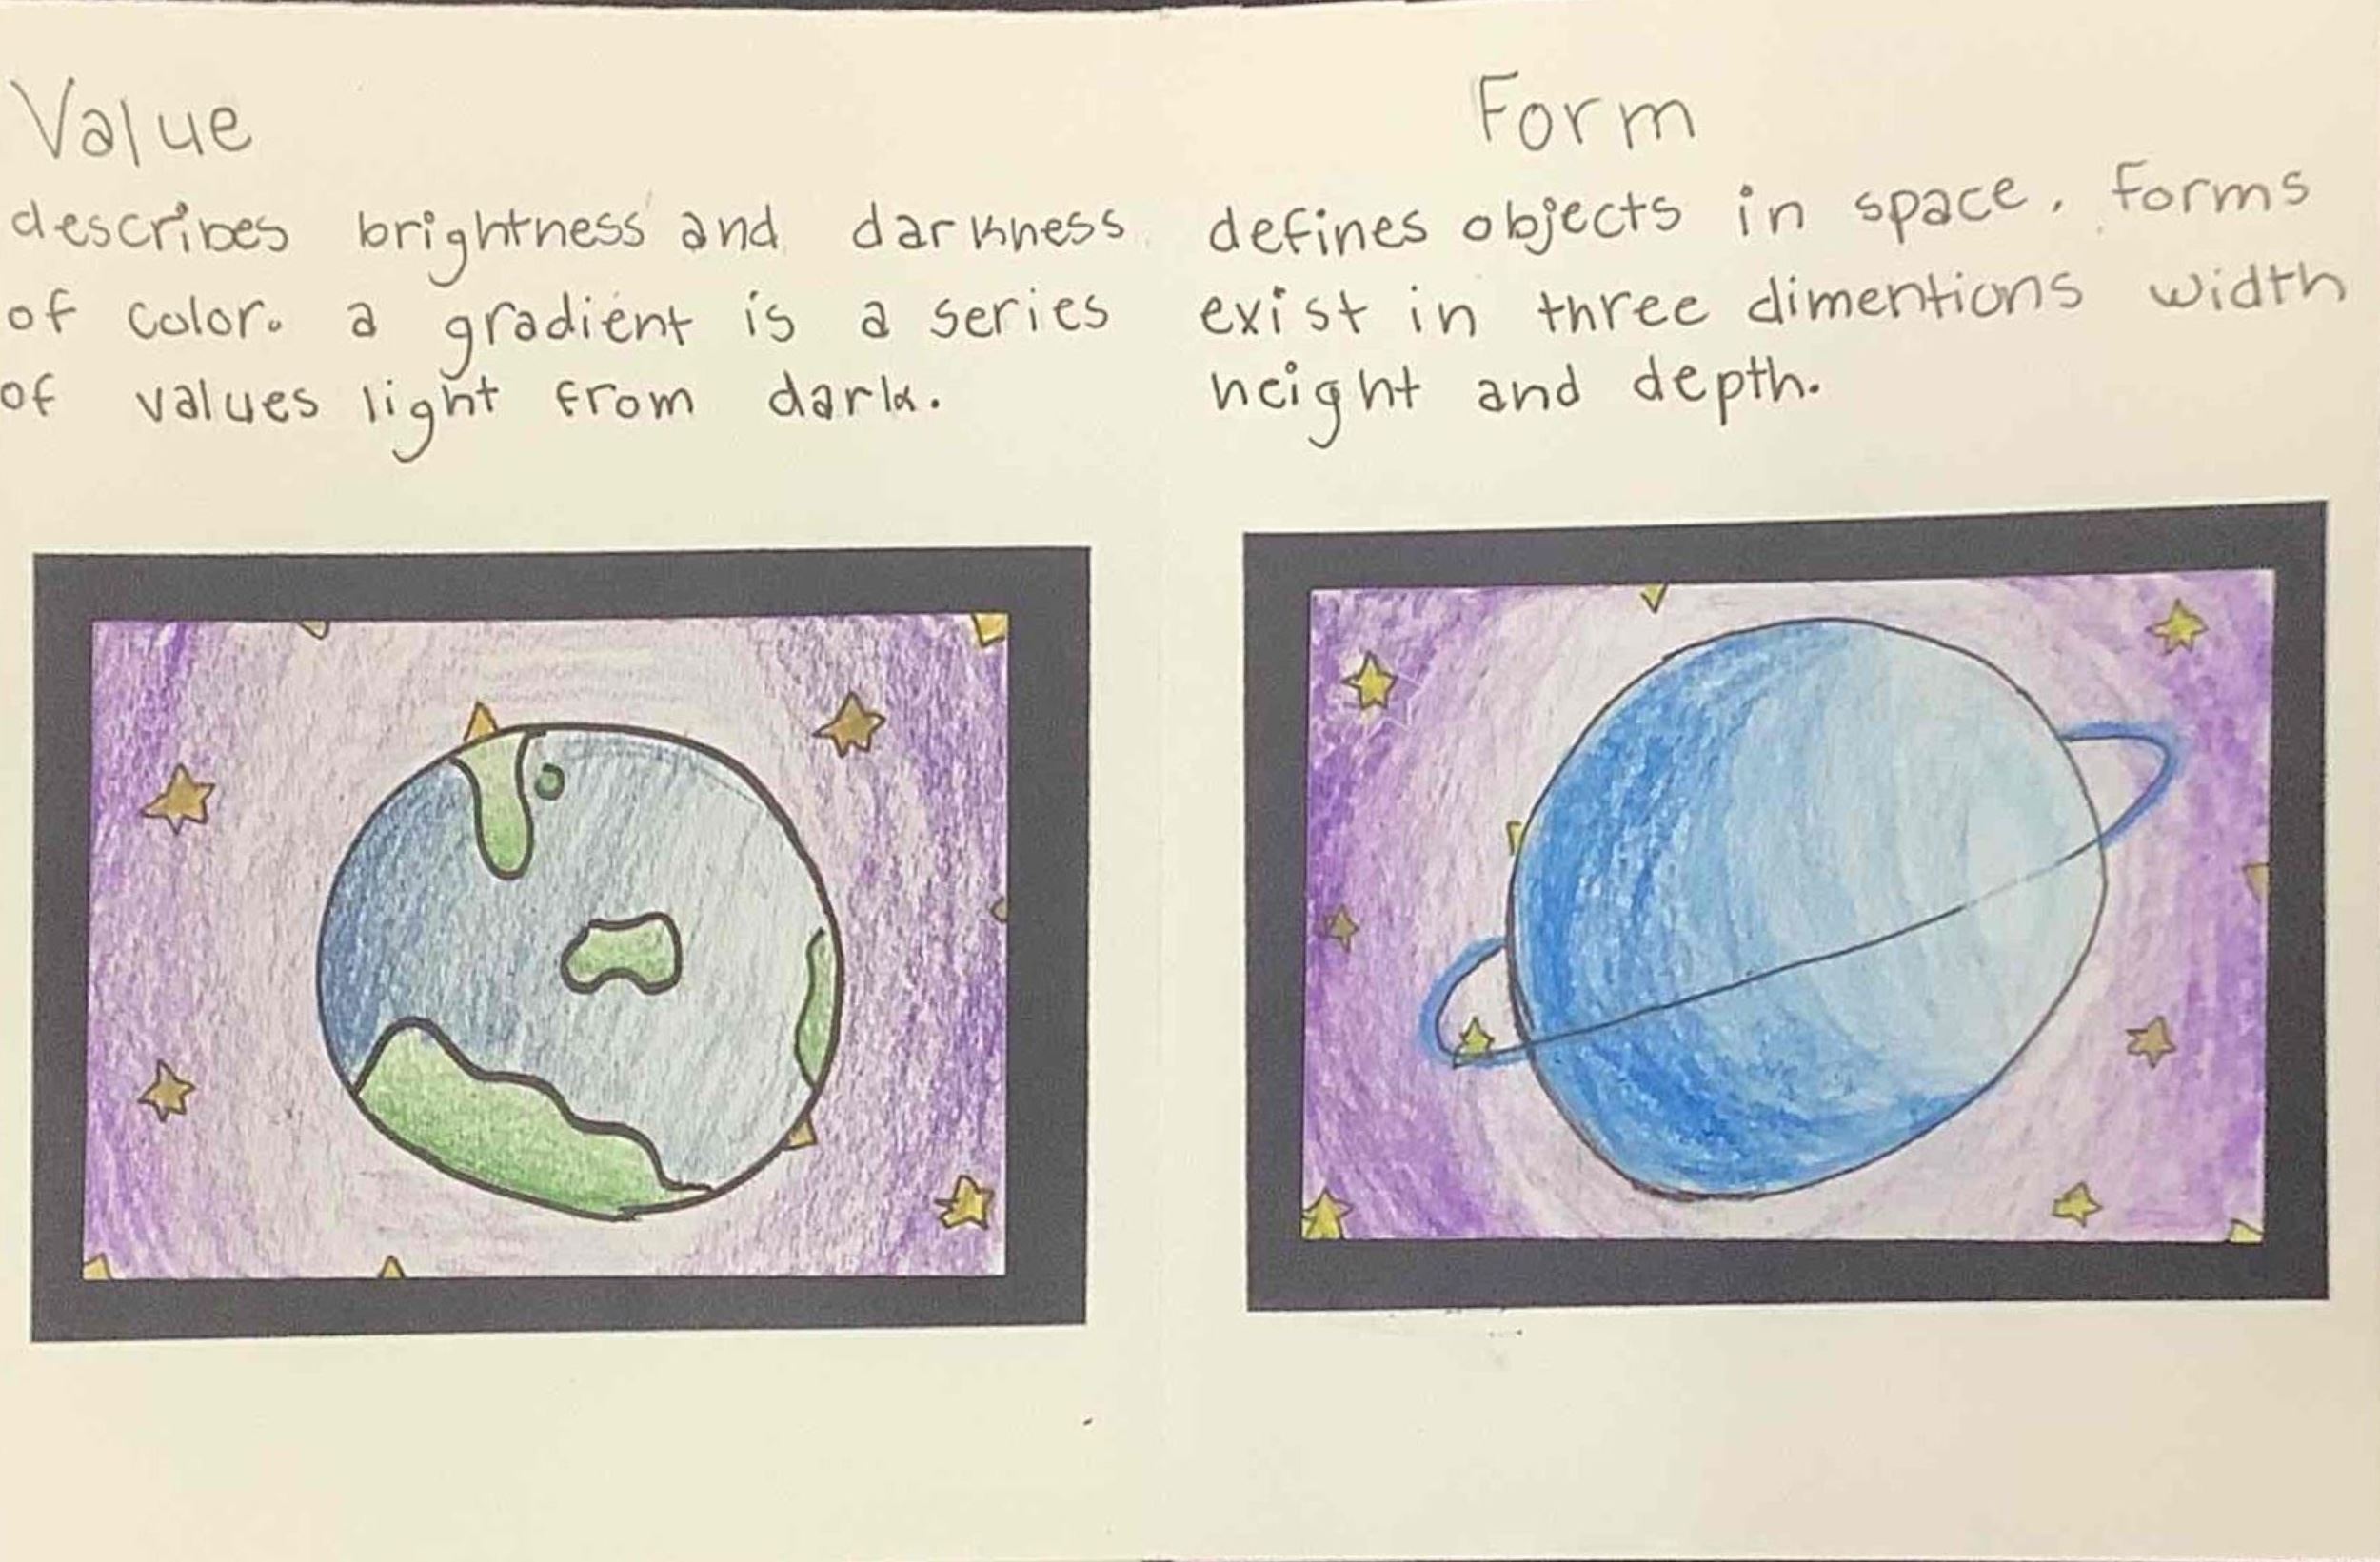 Value
describes brightness and darkness
of color. a gradient is a series
of values light from dark.
Form
defines objects in space. forms
exist in three dimentions width
height and depth.